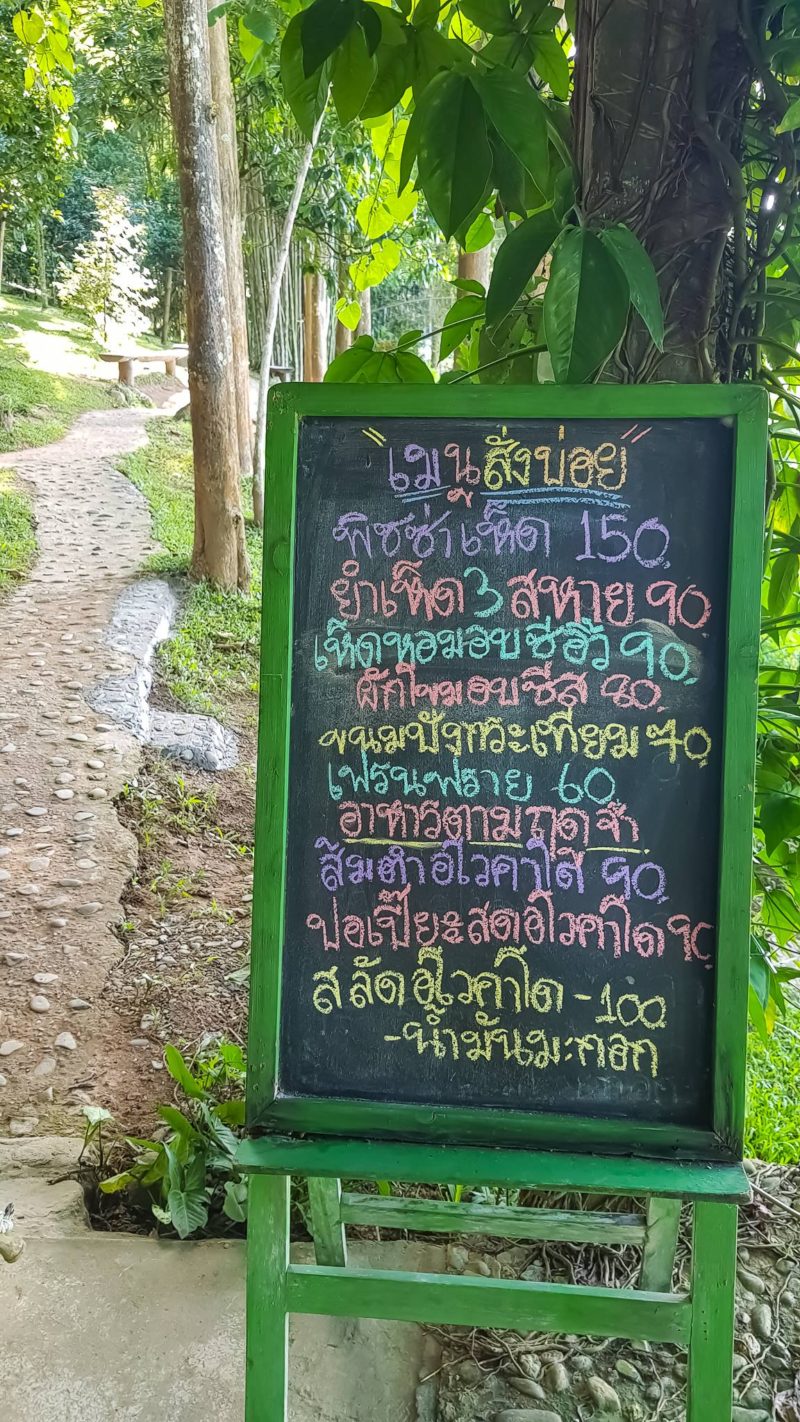 "เมนูสั่งบ่อย"
พิซซ่าเห็ด 150.
ยำเห็ด 3 สหาย 90.
เห็ดหอมอบซีอิ๊ว 90.
ผักโขมอบชีส 80.
ขนมปังกระเทียม 70.
เฟรนฟราย 60.
อาหารตามฤดูจ้า
ส้มตำอโวคาโด้ 90.
ปอเปี๊ยะสดอโวคาโด 90.
สลัดอโวคาโด - 100
- น้ำมันมะกอก